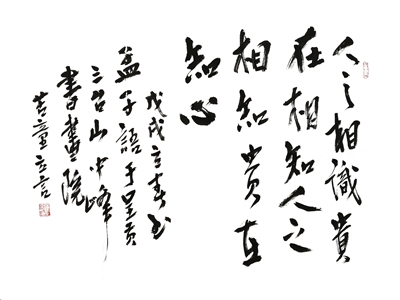 人之相識貴
在相知人之
相知貴在
知心
戊戌立春书
孟子語于呈贡
三台山中峰
書畫院
立言